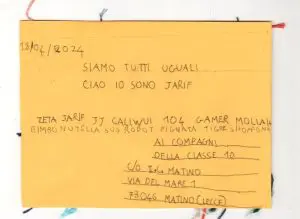 18/04/2024
SIAMO TUTTI UGUALI
CIAO IO SONO JARIF
ZETA JARIF 37 CALIWUI 104 GAMER MOLLALA
BIMBO NUTELLA SUB ROBOT PIGNATA TIGRE
AI COMPAGNI
DELLA CLASSE 1D
C/O MATINO
VIA DEL MARE 1
73046 MATINO (LECCE)